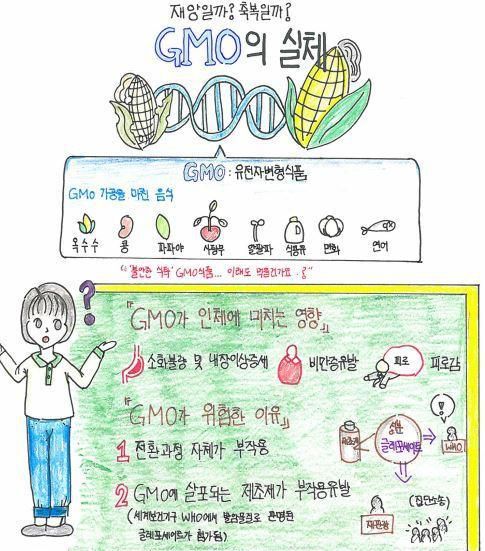 재앙일까? 축복일까?
GMO의 실체
GMO : 유전자변형식품
GMO 가공을 마친 음식
옥수수 콩 파파야 사탕무 알팔파 식용유 면화 연어
"불안한 식탁" GMO식품... 이래도 먹을건가요.?"
?
『GMO가 인체에 미치는 영향』
소화불량 및 내장이상증세 비만증유발 피로 피로감
『GMO가 위험한 이유』
1 전환과정 자체가 부작용
제초제 성분 글리포세이트 ! WHO
2 GMO에 살포되는 제초제가 부작용유발
(세계보건기구 WHO에서 발암물질로 판명된
글리포세이트가 첨가됨)
(집단소송)